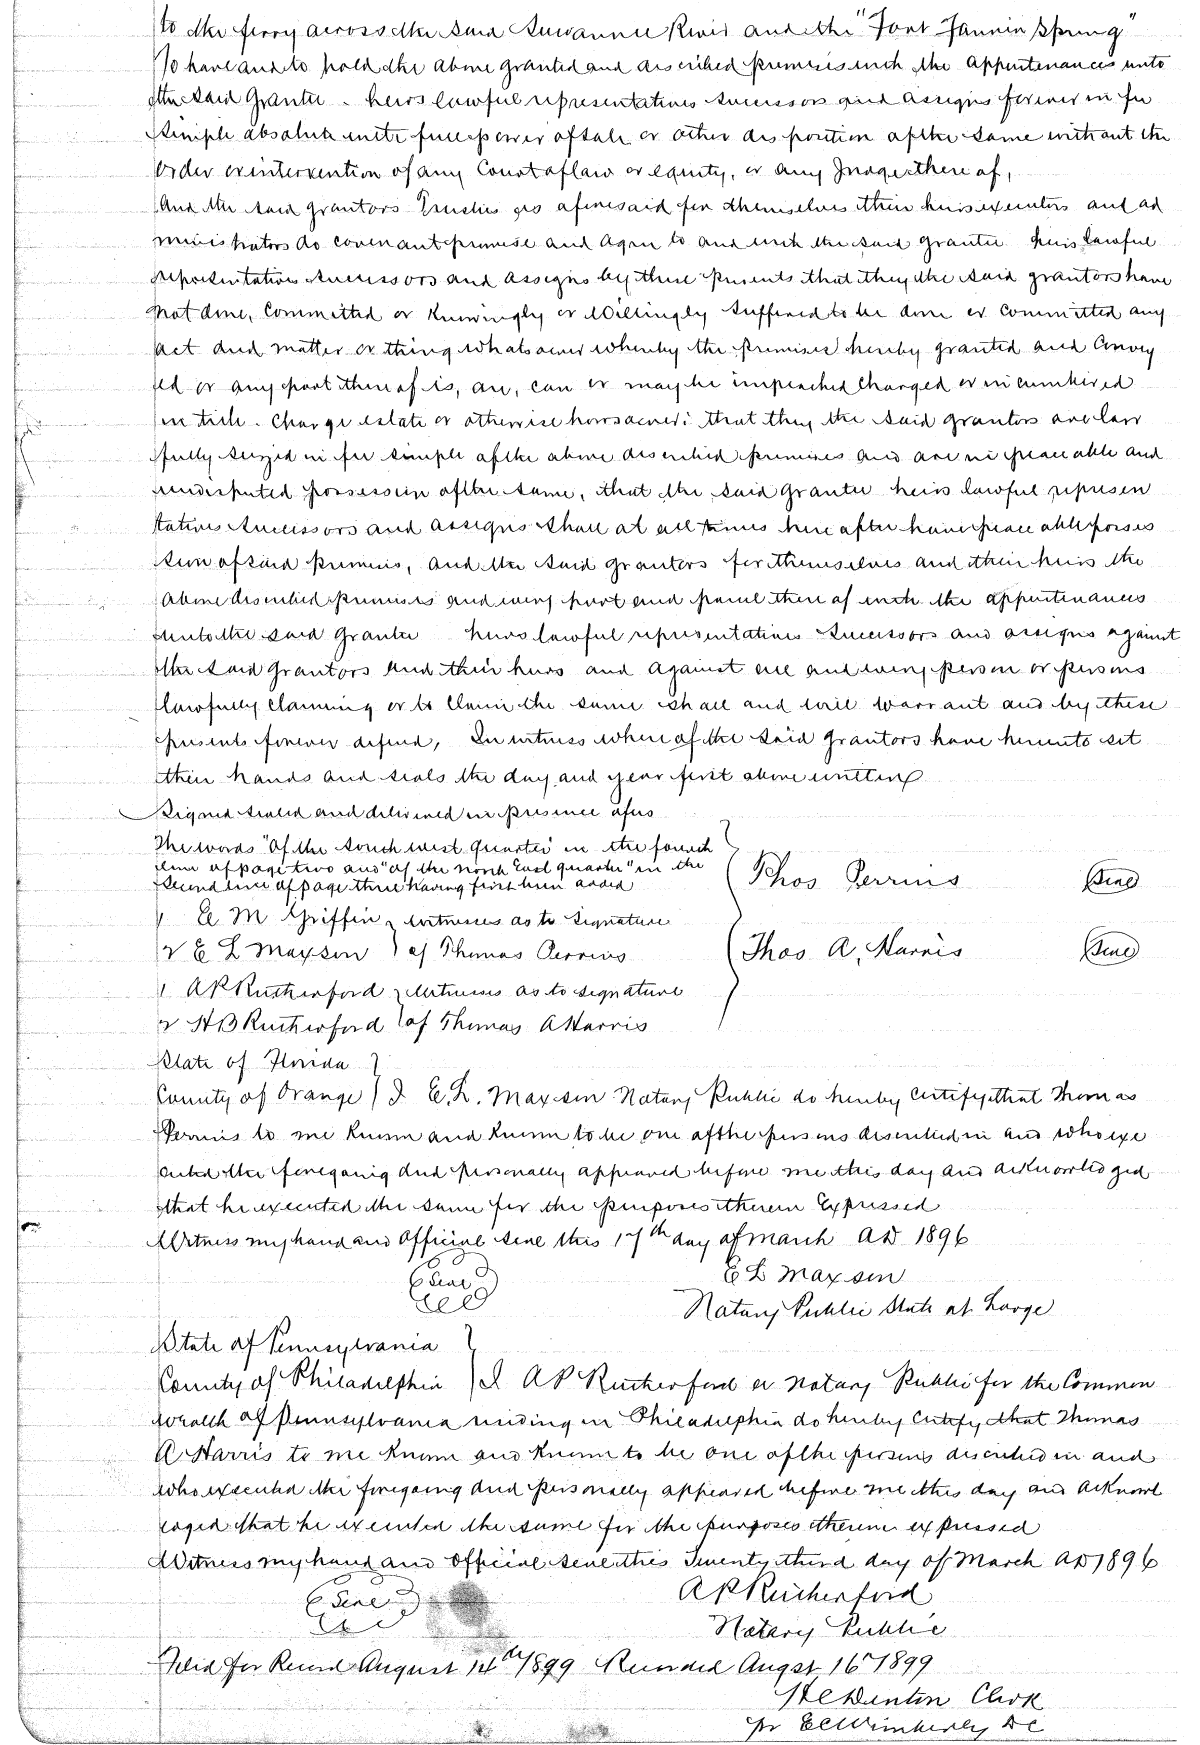 to the ferry across the said Suwannee River and the "Fort Fannin Spring"
To have and to hold the above granted and described premises with the appurtenances unto
the said Grantee heirs lawful representatives successors and assigns forever in fee
simple absolute with full power of sale or other disposition of the same without the
order or intervention of any Court of law or equity, or any Judge thereof,
And the said grantors Trustees as aforesaid for themselves their heirs executors and ad
ministrators do covenant promise and agree to and with the said grantee heirs lawful
representatives successors and assigns by these presents that they the said grantors have
not done, Committed or Knowingly or Willingly suffered to be done or committed any
act deed matter or thing whatsoever whereby the premises hereby granted and Convey
ed or any part thereof is, are, can or may be impeached Charged or incumbered
in title. Charge estate or otherwise howsoever: that they the said grantors are law
fully seized in fee simple of the above described premises and are in peaceable and
undisputed possession of the same, that the said Grantee heirs lawful represen
tatives successors and assigns shall at all times hereafter have peaceable posses
sion of said premises, and the said grantors for themselves and their heirs the
above described premises and every part and parcel thereof with the appurtenances
unto the said Grantee heirs lawful representatives successors and assigns against
the said grantors and their heirs and against all and every person or persons
lawfully claiming or to claim the same shall and will warrant and by these
presents forever defend, In witness whereof the said grantors have hereunto set
their hands and seals the day and year first above written
Signed sealed and delivered in presence of us
The words "Of the south west Quarter" in the fourth
line of page two and "of the north East quarter" in the
second line of page three having first been added
Thos Perrins (Seal)
1 E M Griffin witnesses as to signature
2 E L Maxson of Thomas Perrins
Thos A, Harris (Seal)
1 AP Rutherford witnesses as to signature
2 HB Rutherford of Thomas A Harris
State of Florida
County of Orange I E. L. Maxson Notary Public do hereby Certify that Thomas
Perrins to me known and known to be one of the persons described in and who exe
cuted the foregoing deed personally appeared before me this day and acknowledged
that he executed the same for the purposes therein Expressed
Witness my hand and Official seal this 17th day of March AD 1896
(Seal) E L Maxson
Notary Public State at Large
State of Pennsylvania
County of Philadelphia I AP Rutherford a Notary Public for the Common
wealth of Pennsylvania residing in Philadelphia do hereby Certify that Thomas
A Harris to me known and known to be one of the persons described in and
who executed the foregoing deed personally appeared before me this day and acknowl
eged that he executed the same for the purposes therein expressed
Witness my hand and Official seal this Twenty third day of March AD 1896
(Seal) AP Rutherford
Notary Public
Filed for Record August 14th 1899 Recorded Augst 16 1899
Denton Clerk
pr EC Wimberly DC